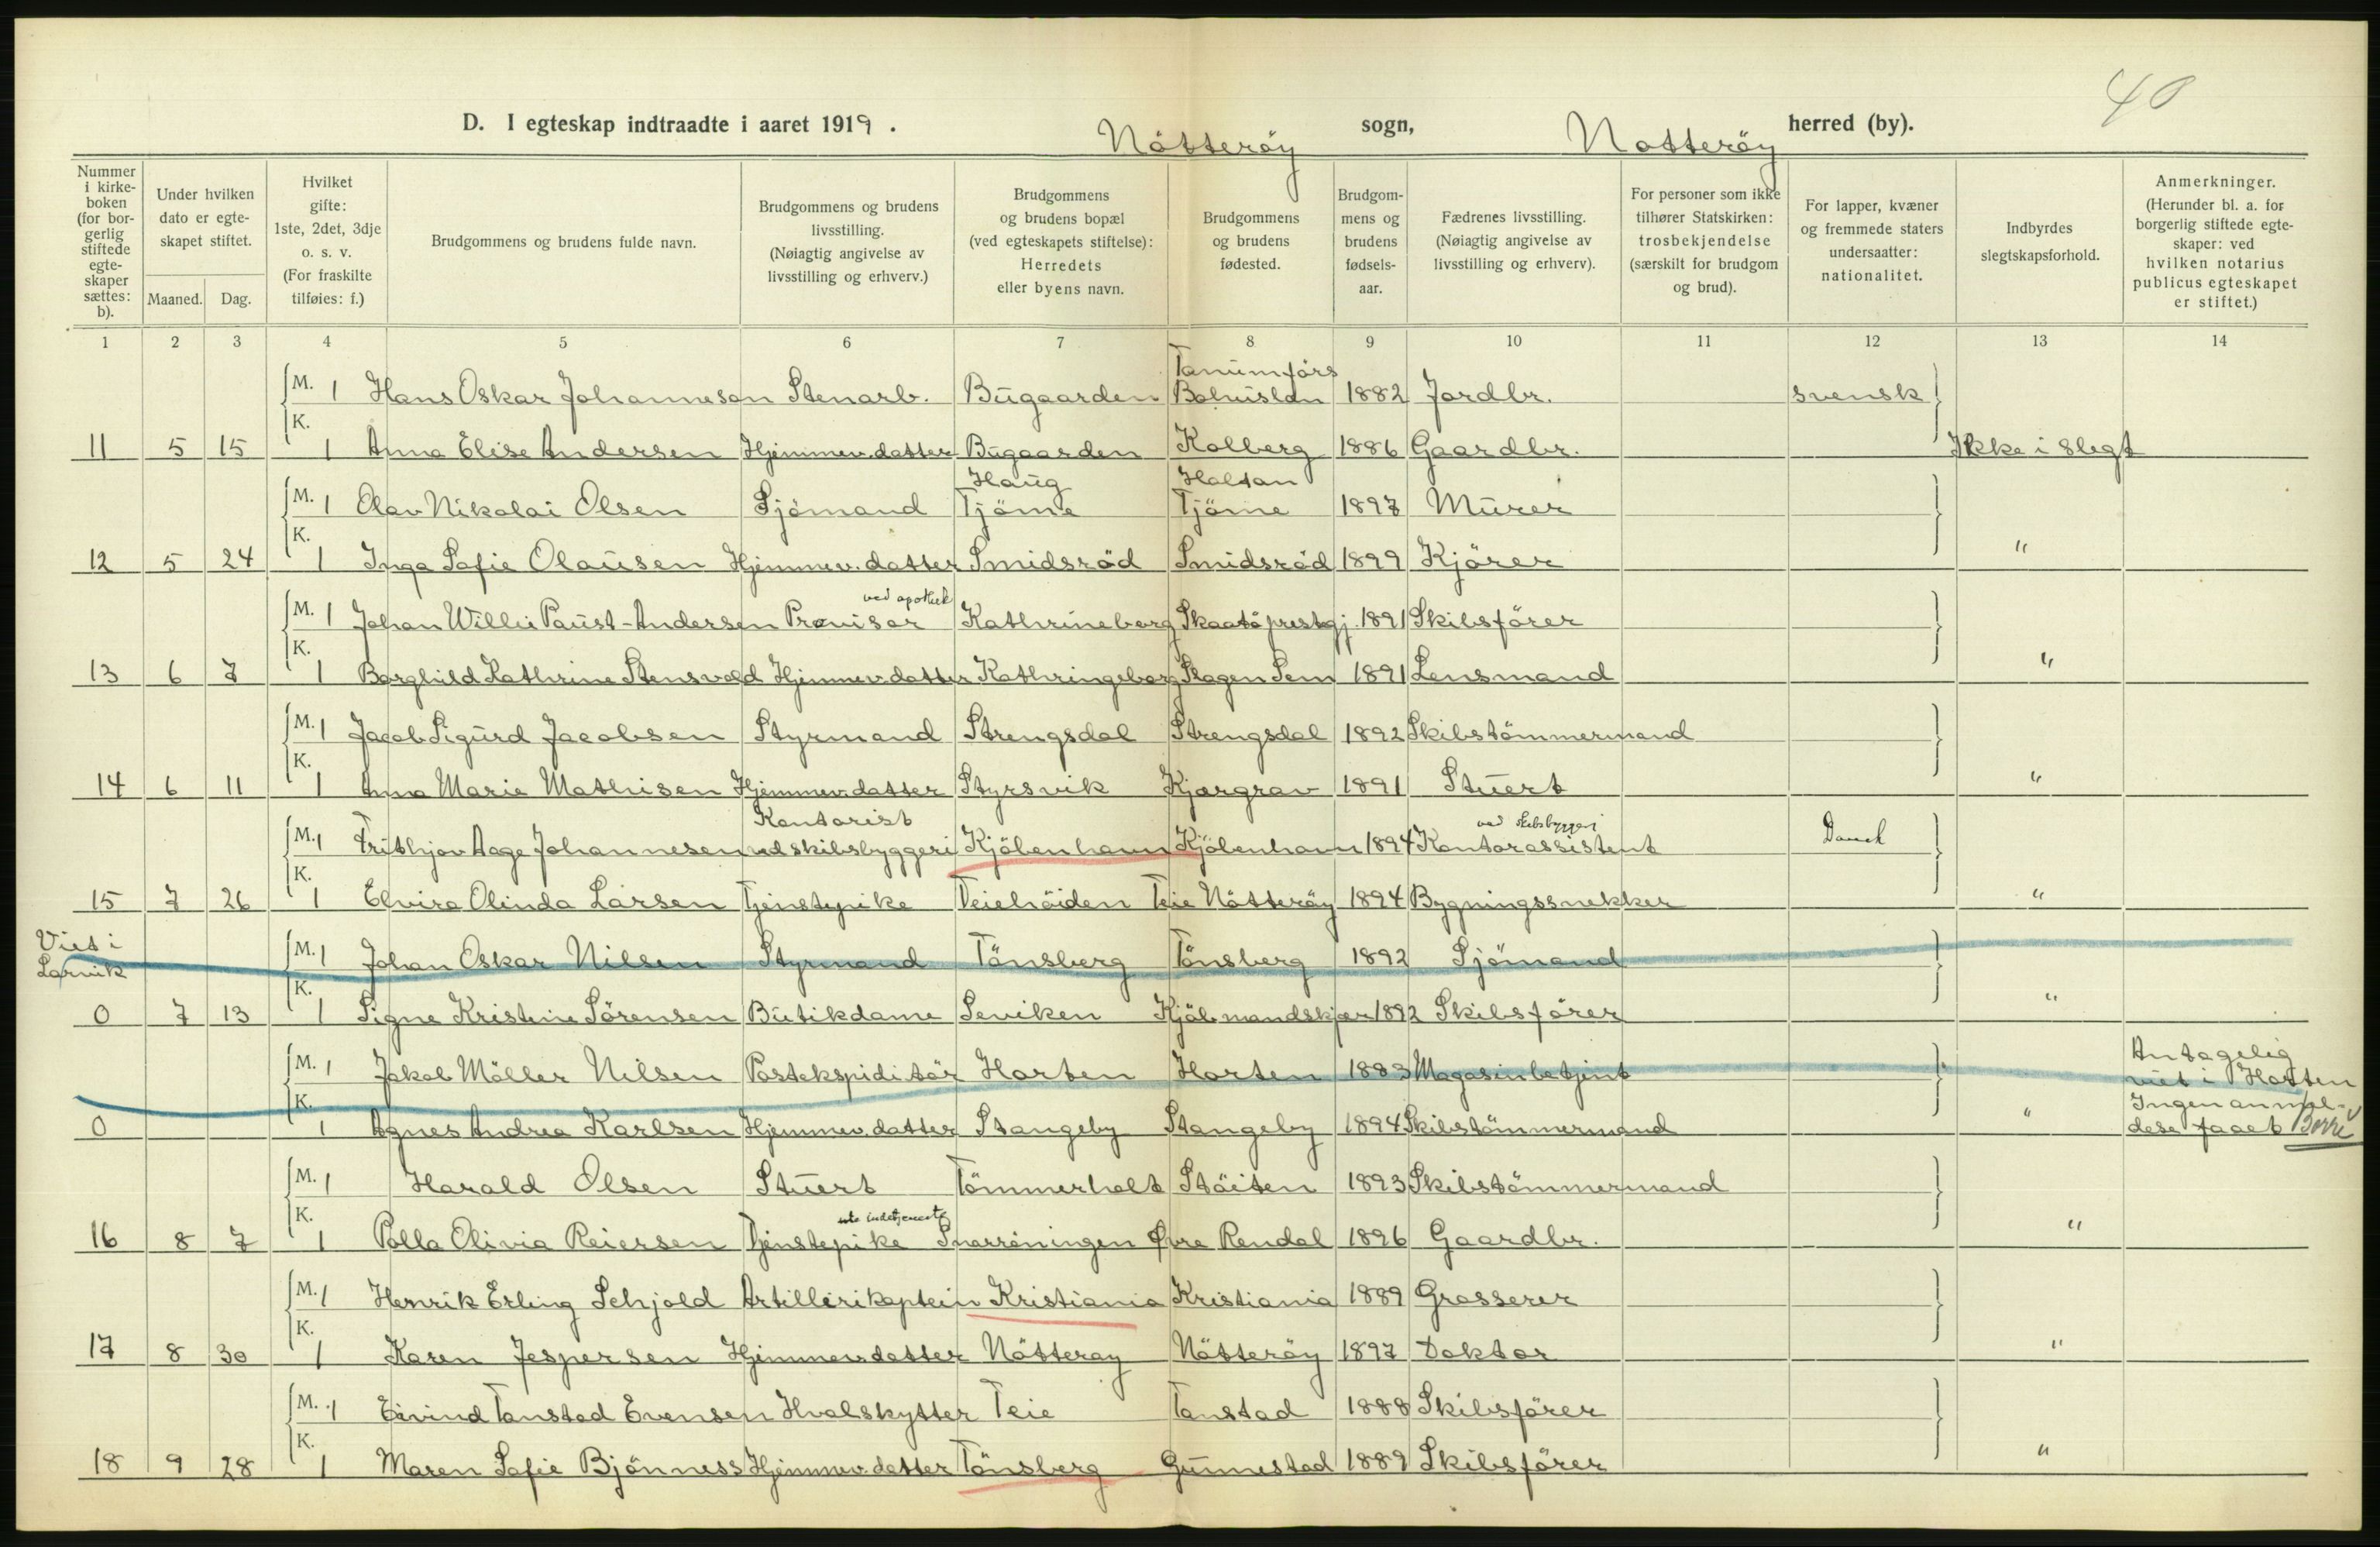 40
D. I egteskap indtraadte i aaret 1919. Nötteröy sogn, Nötteröy herred (by).
Nummer i kirke-boken (for bor-gerlig stiftede egte-skaper sættes: b).
Under hvilken dato er egte-skapet stiftet.
Maaned. Dag.
Hvilket gifte: 1ste, 2det, 3dje o. s. v. (For fraskilte tilføies: f.)
Brudgommens og brudens fulde navn.
Brudgommens og brudens livsstilling. (Nøiagtig angivelse av livsstilling og erhverv.)
Brudgommens og brudens bopæl (ved egteskapets stiftelse): Herredets eller byens navn.
Brudgommens og brudens fødested.
Brudgom-mens og brudens fødsels-aar.
Fædrenes livsstilling. (Nøiagtig angivelse av livsstilling og erhverv).
For personer som ikke tilhører Statskirken: trosbekjendelse (særskilt for brudgom og brud).
For lapper, kvæner og fremmede staters undersaatter: nationalitet.
Indbyrdes slegtskapsforhold.
Anmerkninger. (Herunder bl. a. for borgerlig stiftede egte-skaper: ved hvilken notarius publicus egteskapet er stiftet.)
1 2 3 4 5 6 7 8 9 10 11 12 13 14
M. 1 Hans Oskar Johanneson Stenarb. Bugaarden Tanumfors Bohuslän 1882 Jordbr. svensk
11 5 15 K. 1 Anna Elise Andersen Hjemmev. datter Bugaarden Kolberg 1886 Gaardbr. Ikke i slegt
M. 1 Olav Nikolai Olsen Sjömand Haug Tjöme Holtan Tjöme 1897 Murer
12 5 24 K. 1 Inga Sofie Olausen Hjemmev. datter Smidsröd Smidsröd 1899 Kjörer "
M. 1 Johan Willie Paust-Andersen Provisor ved apothek Kathrineborg Skaatö prestgj. 1891 Skibsförer
13 6 7 K. 1 Borghild Kathrine Stensvold Hjemmev. datter Kathringeborg Slagen Sem 1891 Lensmand "
M. 1 Jacob Sigurd Jacobsen Styrmand Strengsdal Strengsdal 1892 Skibstömmermand
14 6 11 K. 1 Anna Marie Mathisen Hjemmev. datter Styrsvik Kjærgrav 1891 Stuert "
M. 1 Frithjov Aage Johannesen Kontorist ved skibsbyggeri Kjöbenhavn Kjöbenhavn 1894 Kontorassistent ved skibsbyggeri Dansk
15 7 26 K. 1 Elvira Olinda Larsen Tjenstepike Teiehöiden Teie Nötteröy 1894 Bygningssnekker "
Viet i Larvik
M. 1 Johan Oskar Nilsen Styrmand Tönsberg Tönsberg 1892 Sjömand
0 7 13 K. 1 Signe Kristine Sörensen Butikdame Seviken Kjöbmandskjær 1892 Skibsförer "
M. 1 Jakob Möller Nilsen Postekspiditör Horten Horten 1883 Magasinbetjent Antagelig viet i Horten
0 K. 1 Agnes Andrea Karlsen Hjemmev. datter Stangeby Stangeby 1894 Skibstömmermand " Ingen anmel-delse faaet Borre
M. 1 Harald Olsen Stuert Tömmerholt Stöiten 1893 Skibstömmermand
16 8 7 K. 1 Palla Olivia Reiersen Tjenstepike Snarröningen Øvre Rendal 1896 Gaardbr. "
M. 1 Henrik Erling Schjold Artillerikaptein Kristiania Kristiania 1889 Grosserer
17 8 30 K. 1 Karen Jespersen Hjemmev. datter Nötteröy Nötteröy 1897 Doktor "
M. 1 Eivind Tanstad Evensen Hvalskytter Teie Tanstad 1888 Skibsförer
18 9 28 K. 1 Maren Sofie Bjönness Hjemmev. datter Tönsberg Gunnestad 1889 Skibsförer "